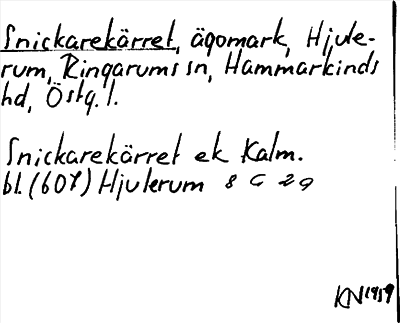 Snickarekärret, ägomark, Hjule-
rum, Ringarums sn, Hammarkinds
hd, Östg. l.
Snickarekärret ek Kalm.
bl. (607) Hjulerum 8 G 2g
KN 1959